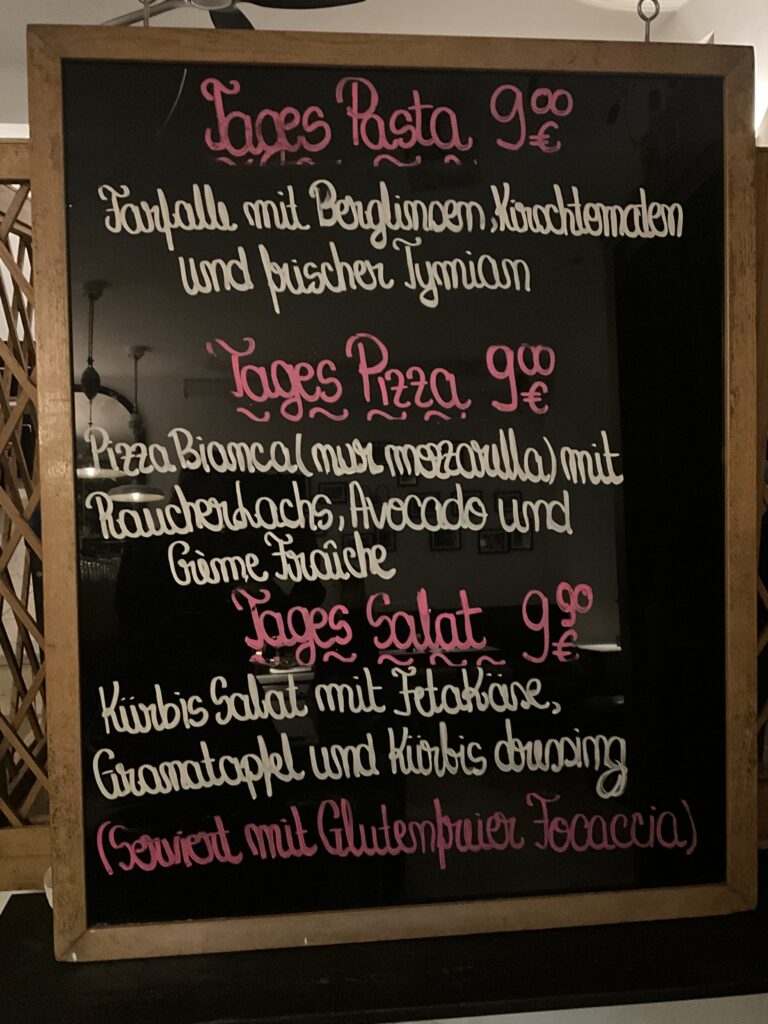 Tages Pasta 9⁰⁰ €
Farfalle mit Berglinsen, Kirschtomaten
und frischer Tymian
Tages Pizza 9⁰⁰ €
Pizza Bianca (nur mozzarella) mit
Räucherlachs, Avocado und
Crème Fraîche
Tages Salat 9⁹⁰ €
Kürbis Salat mit Fetakäse,
Granatapfel und Kürbis dressing
(Serviert mit Glutenfreier Focaccia)